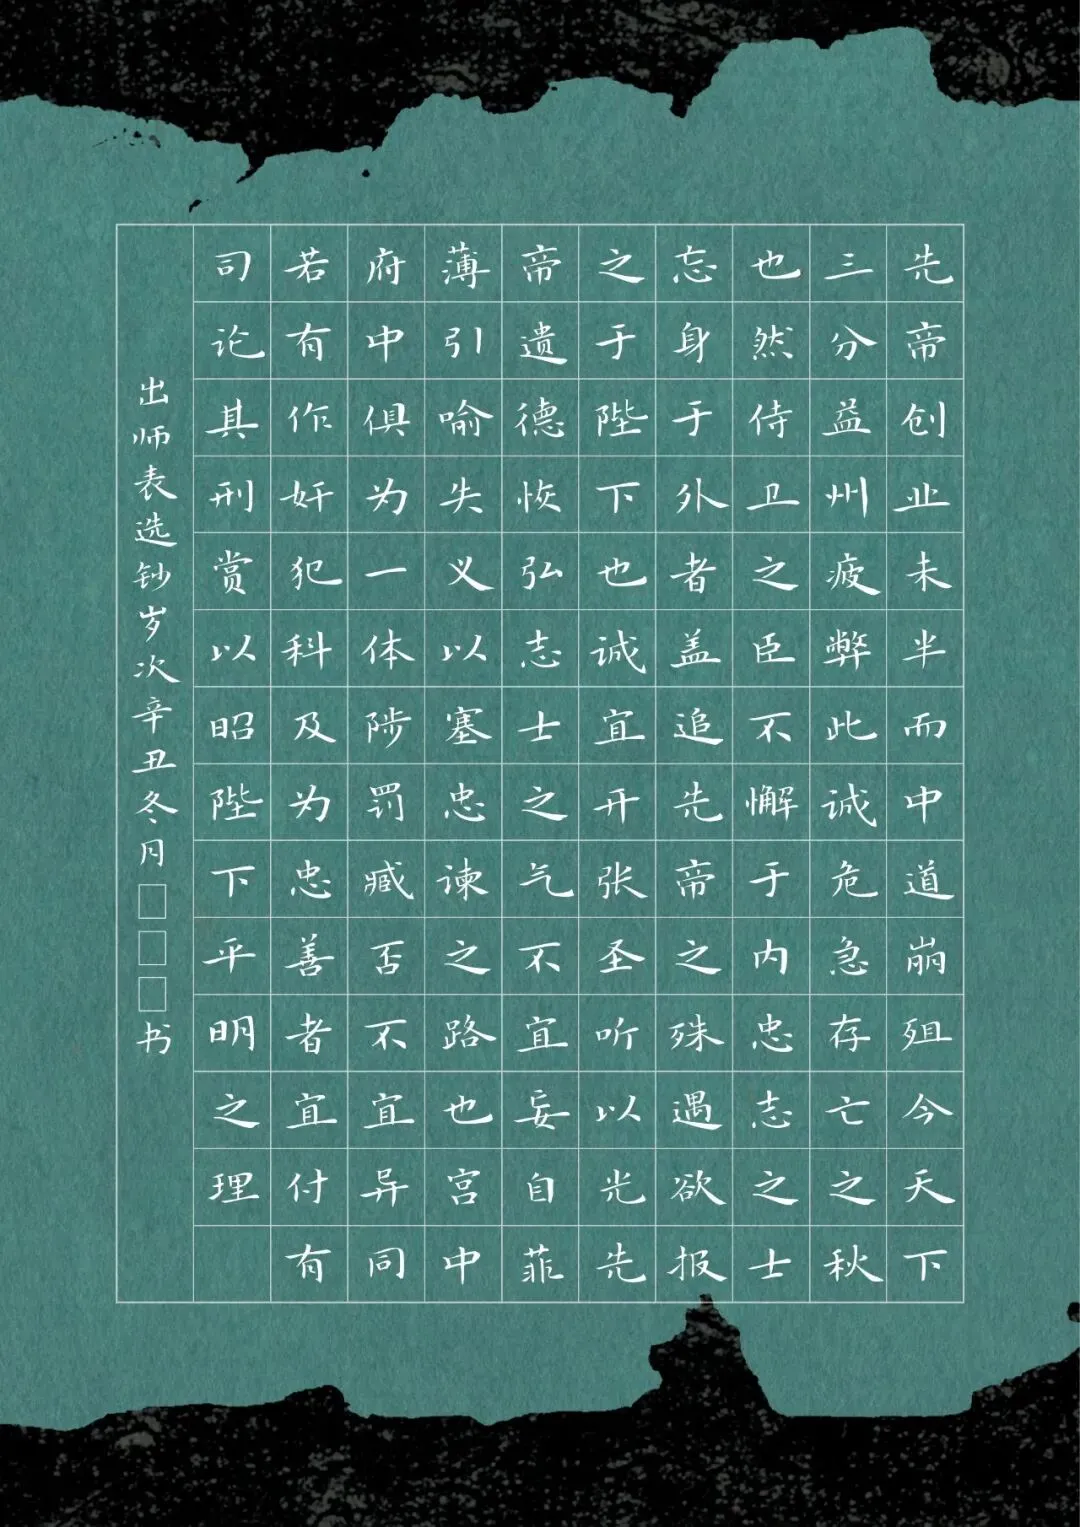 先帝创业未半而中道崩殂今天下
三分益州疲弊此诚危急存亡之秋
也然侍卫之臣不懈于内忠志之士
忘身于外者盖追先帝之殊遇欲报
之于陛下也诚宜开张圣听以光先
帝遗德恢弘志士之气不宜妄自菲
薄引喻失义以塞忠谏之路也宫中
府中俱为一体陟罚臧否不宜异同
若有作奸犯科及为忠善者宜付有
司论其刑赏以昭陛下平明之理
出师表选钞岁次辛丑冬月□□□书